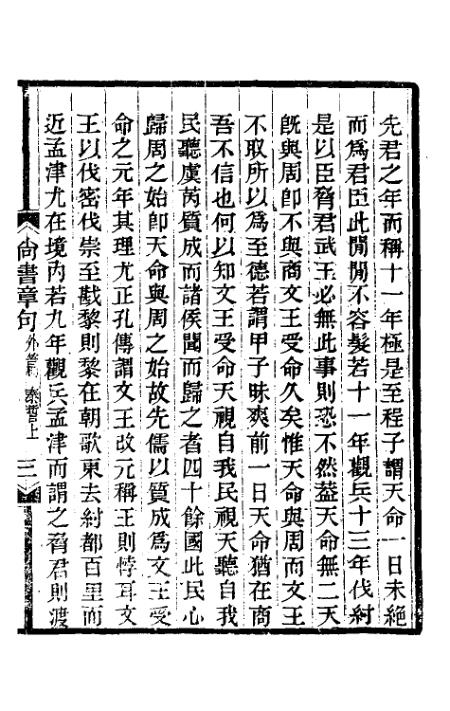 先君之年而稱十一年極是至程子謂天命一日未絕
而爲君臣此閒閒不容髮若十一年觀兵十三年伐紂
是以臣脅君武王必無此事則恐不然葢天命無二天
旣與周卽不與商文王受命久矣惟天命與周而文王
不取所以爲至德若謂甲子昧爽前一日天命猶在商
吾不信也何以知文王受命天視自我民視天聽自我
民聽虞芮質成而諸侯聞而歸之者四十餘國此民心
歸周之始卽天命與周之始故先儒以質成爲文王受
命之元年其理尤正孔傳謂文王改元稱王則悖耳文
王以伐密伐崇至戡黎則黎在朝歌東去紂都百里而
近孟津尤在境內若九年觀兵孟津而謂之脅君則渡
尚書章句 外篇 泰誓上 三